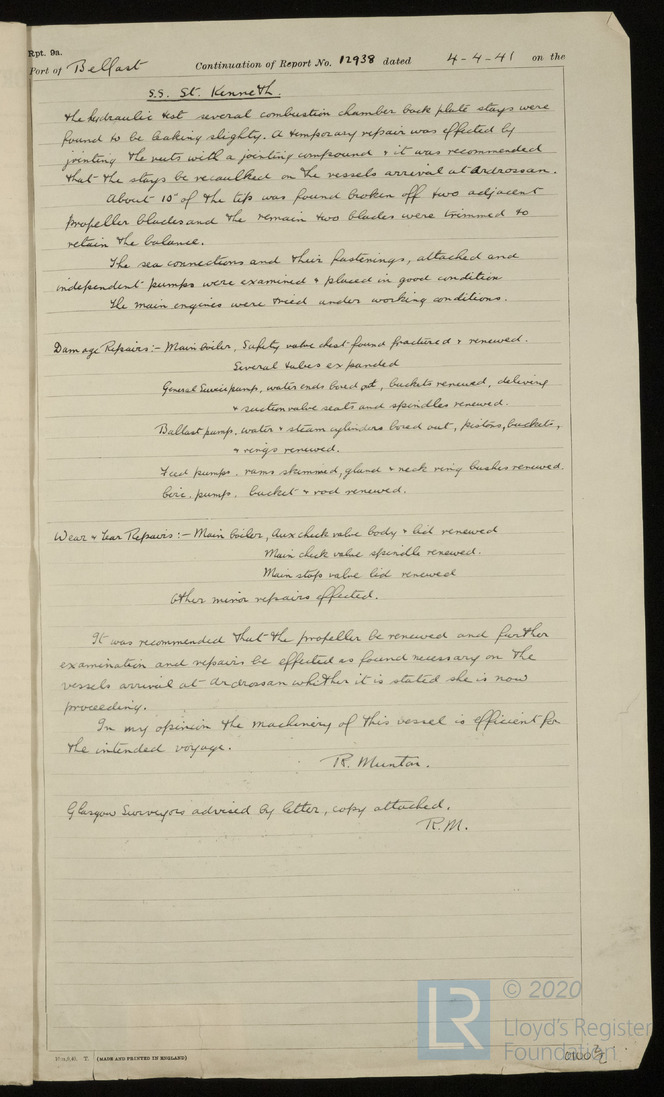 Rpt. 9a.
Port of Belfast Continuation of Report No. 12938 dated 4-4-41 on the
S.S. St. Kenneth.
the hydraulic test several combustion chamber back plate stays were
found to be leaking slightly. A temporary repair was effected by
jointing the nuts with a jointing compound & it was recommended
that the stays be recaulked on the vessels arrival at Ardrossan.
About 15" of the tips was found broken off two adjacent
propeller blades and the remain two blades were trimmed to
retain the balance.
The sea connections and their fastenings, attached and
independent pumps were examined & placed in good condition
The main engines were tried under working conditions.
Damage Repairs:- Main boiler, Safety valve chest found fractured & renewed.
Several tubes expanded
General Service pump, water ends bored out, buckets renewed, delivery
& suction valve seats and spindles renewed.
Ballast pump, water & steam cylinders bored out, pistons, buckets,
& rings renewed.
Feed pumps. rams skimmed, gland & neck ring bushes renewed.
Circ. pump. bucket & rod renewed.
Wear & Tear Repairs:- Main boiler, Aux check valve body & lid renewed
Main check valve spindle renewed.
Main stop valve lid renewed
Other minor repairs effected.
It was recommended that the propeller be renewed and further
examination and repairs be effected as found necessary on the
vessels arrival at Ardrossan whither it is stated she is now
proceeding.
In my opinion the machinery of this vessel is efficient for
the intended voyage.
R. Munton.
Glasgow Surveyors advised by letter, copy attached.
R.M.
T. (MADE AND PRINTED IN ENGLAND)
LR © 2020
Lloyd's Register
Foundation